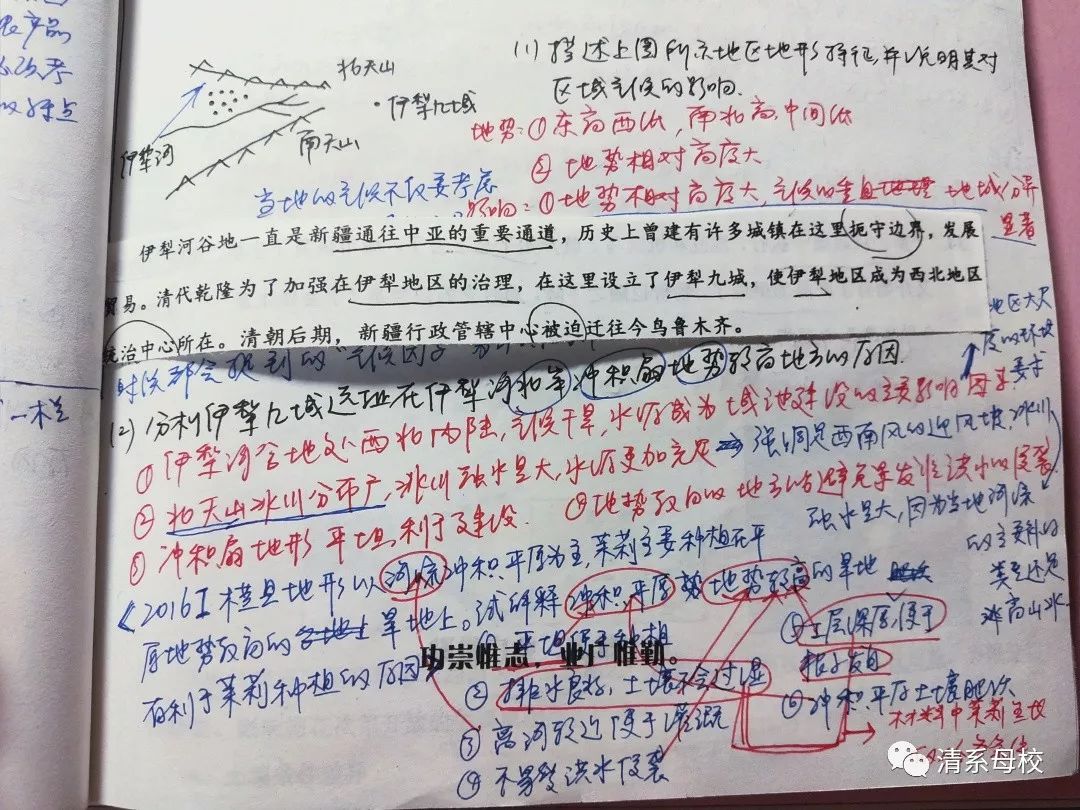 农产品
的特点
北天山
·伊犁九城
伊犁河
南天山
(1) 描述上图所示地区地形特征,并说明其对
区域气候的影响.
地势:①东高西低,南北高,中间低
②地势相对高度大
影响:①地势相对高度大,气候的垂直地域分异
显著
当地的气候不仅要考虑
伊犁河谷地一直是新疆通往中亚的重要通道,历史上曾建有许多城镇在这里扼守边界,发展
贸易。清代乾隆为了加强在伊犁地区的治理,在这里设立了伊犁九城,使伊犁地区成为西北地区
统治中心所在。清朝后期,新疆行政管辖中心被迫迁往今乌鲁木齐。
(2) 分析伊犁九城选址在伊犁河北岸冲积扇地势较高地方的原因.
①伊犁河谷地处西北内陆,气候干旱,水源成为城池建设的主要影响因素
②北天山冰川分布广,冰川融水量大,水源更加充足
强调是西南风的迎风坡,冰川
融水量大,因为当地河流
的主要补给
类型还是
高山冰
③冲积扇地形平坦,利于建设.
④地势较高的地方能避免暴发性洪水的侵袭
《2016 I 横县地形以河流冲积平原为主,茉莉主要种植在平
原地势较高的旱地上。试解释冲积平原地势较高的旱地
有利于茉莉种植的原因》
①平坦便于种植
功崇惟志,业广惟勤。
②排水良好,土壤不会过湿
③离河较近便于灌溉
④不易受洪水侵袭
⑤土层深厚,便于
根系发育
⑥冲积平原土壤肥沃
清系母校